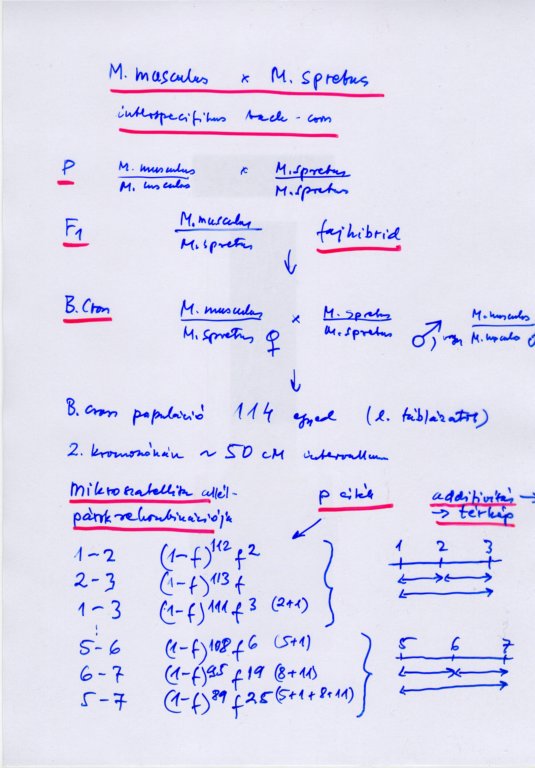 M. musculus × M. spretus
interspecifikus back-cross
P M. musculus / M. musculus × M. spretus / M. spretus
F1 M. musculus / M. spretus fajhibrid
↓
B. Cross M. musculus / M. spretus ♀ × M. spretus / M. spretus ♂, vagy M. musculus / M. musculus ♂
↓
B. cross populáció 114 egyed (l. táblázatot)
2. kromoszómán ~ 50 cM intervallum
Mikroszatellita allél-
párok rekombinációja
p cikk
additivitás →
→ térkép
1-2 (1-f)^112 f^2
2-3 (1-f)^113 f
1-3 (1-f)^111 f^3 (2+1)
5-6 (1-f)^108 f^6 (5+1)
6-7 (1-f)^95 f^19 (8+11)
5-7 (1-f)^89 f^25 (5+1+8+11)
1 2 3
5 6 7